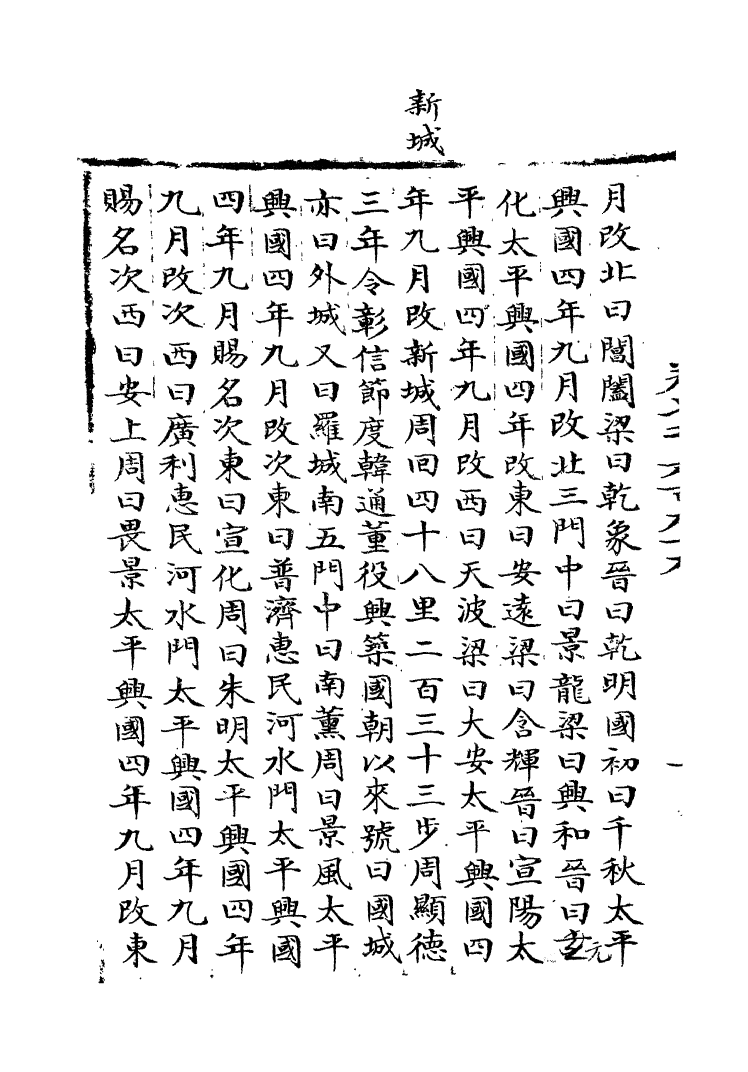 新城
月改北曰閶闔梁曰乾象晉曰乾明國初曰千秋太平
興國四年九月改北三門中曰景龍梁曰興和晉曰玄元
化太平興國四年改東曰安遠梁曰含輝晉曰宣陽太
平興國四年九月改西曰天波梁曰大安太平興國四
年九月改新城周回四十八里二百三十三步周顯德
三年令彰信節度韓通董役興築國朝以來號曰國城
亦曰外城又曰羅城南五門中曰南薰周曰景風太平
興國四年九月改次東曰普濟惠民河水門太平興國
四年九月賜名次東曰宣化周曰朱明太平興國四年
九月改次西曰廣利惠民河水門太平興國四年九月
賜名次西曰安上周曰畏景太平興國四年九月改東